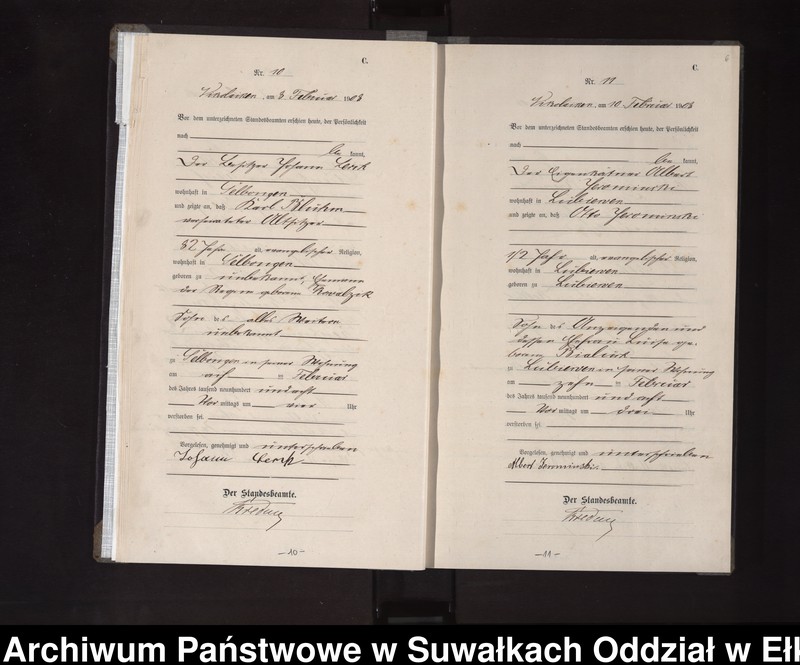 C.
Nr. 10
am 8 Februar 1908
Vor dem unterzeichneten Standesbeamten erschien heute, der Persönlichkeit
nach
be kannt,
Der Besitzer Johann
wohnhaft in Gelbongen
und zeigte an, daß Karl
Altsitzer
82 Jahre alt, evangelischer Religion,
wohnhaft in Gelbongen
geboren zu unbekannt, Ehemann
der geborene Kowalzik
Sohn des alles Weitere
unbekannt
zu Gelbongen in seiner Wohnung
am Februar
des Jahres tausend neunhundert und acht
Vor mittags um vier Uhr
verstorben sei.
Vorgelesen, genehmigt und unterschrieben
Johann
Der Standesbeamte.
—10—
6
C.
Nr. 11
am 10 Februar 1908
Vor dem unterzeichneten Standesbeamten erschien heute, der Persönlichkeit
nach
be kannt,
Der Eigenkätner Albert
Jerominski
wohnhaft in Lubiewen
und zeigte an, daß Otto Jerominski
1/2 Jahr alt, evangelischer Religion,
wohnhaft in Lubiewen
geboren zu Lubiewen
Sohn des Anzeigenden und
dessen Ehefrau Luise ge-
borene
zu Lubiewen in seiner Wohnung
am zehn Februar
des Jahres tausend neunhundert und acht
Vor mittags um drei Uhr
verstorben sei.
Vorgelesen, genehmigt und unterschrieben
Albert Jerominski
Der Standesbeamte.
—11—
Archiwum Państwowe w Suwałkach Oddział w Ełk